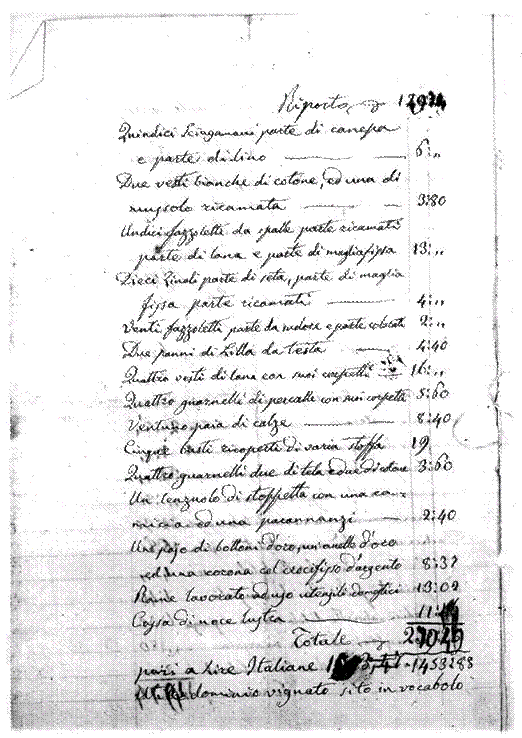 Riporto
Quindici sciugamani parte di canepa
e parte di lino — 6:„
Due vesti bianche di cotone, ed una di
mussolo ricamata — 3:80
Undici fazzoletti da spalle parte ricamati
parte di lana e parte di maglia fissa 13:„
Dieci zinali parte di seta, parte di maglia
fissa parte ricamati — 4:„
Venti fazzoletti parte da e parte colorati 2:„
Due panni di Lilla da testa — 4:40
Quattro vesti di lana con suoi corpetti 16:„
Quattro guarnelli di percalle con suoi corpetti 5:60
Ventuno paia di calze — 8:40
Cinque busti ricoperti di varia stoffa 19
Quattro guarnelli due di tela e due di cotone 3:60
Un lenzuolo di stoppetta con una ca=
micia ed una parannanzi — 2:40
Un pajo di bottoni d'oro, un anello d'oro
ed una corona col crocifisso d'argento 8:32
Rame lavorato ad uso utensili domestici 13:02
Cassa di noce lustra —
Totale
pari a Lire Italiane 1453:83
dominio vignato sito in vocabolo